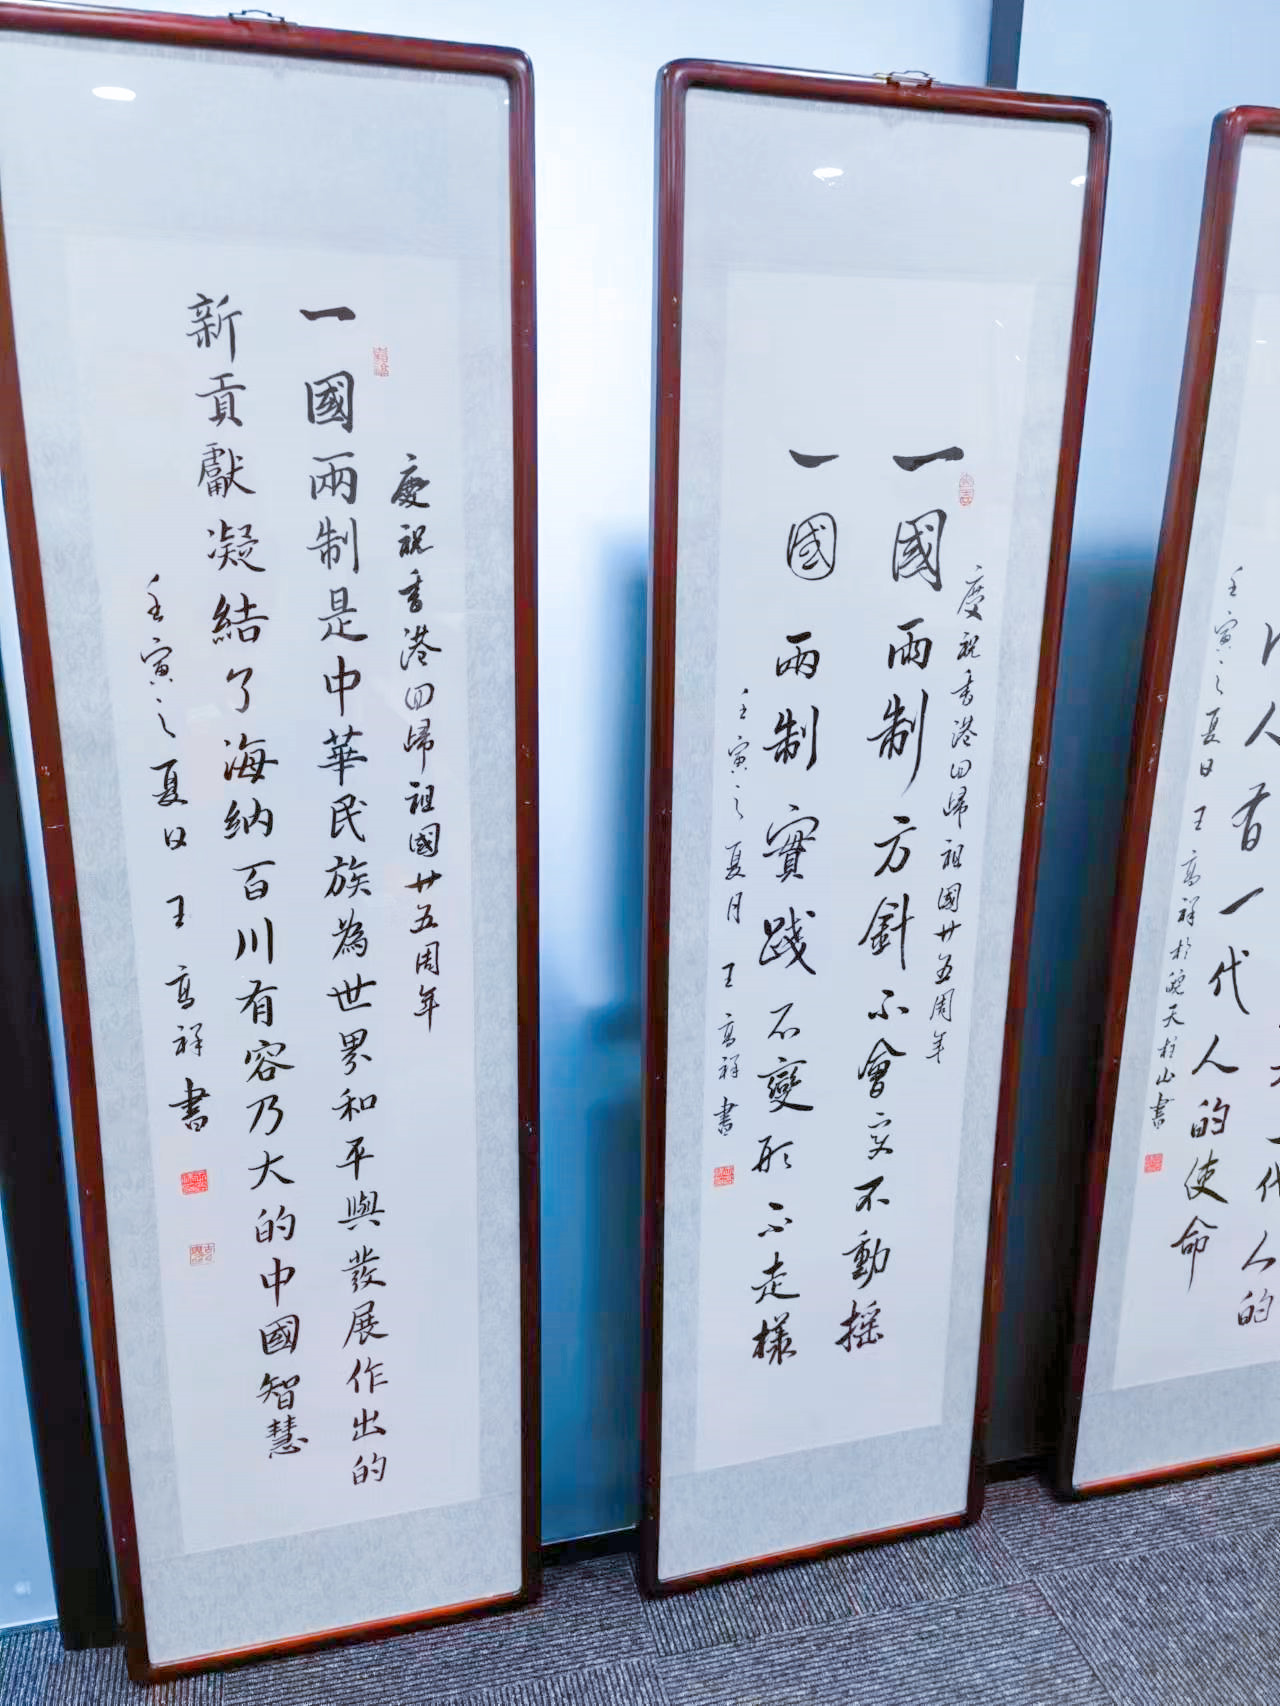 慶祝香港回歸祖國廿五周年
一國兩制是中華民族為世界和平與發展作出的
新貢獻凝結了海納百川有容乃大的中國智慧
壬寅之夏日 王高祥書
慶祝香港回歸祖國廿五周年
一國兩制方針不會變不動搖
一國兩制實踐不變形不走樣
壬寅之夏月 王高祥書
一代人的
人有一代人的使命
壬寅之夏日 王高祥於皖天柱山書